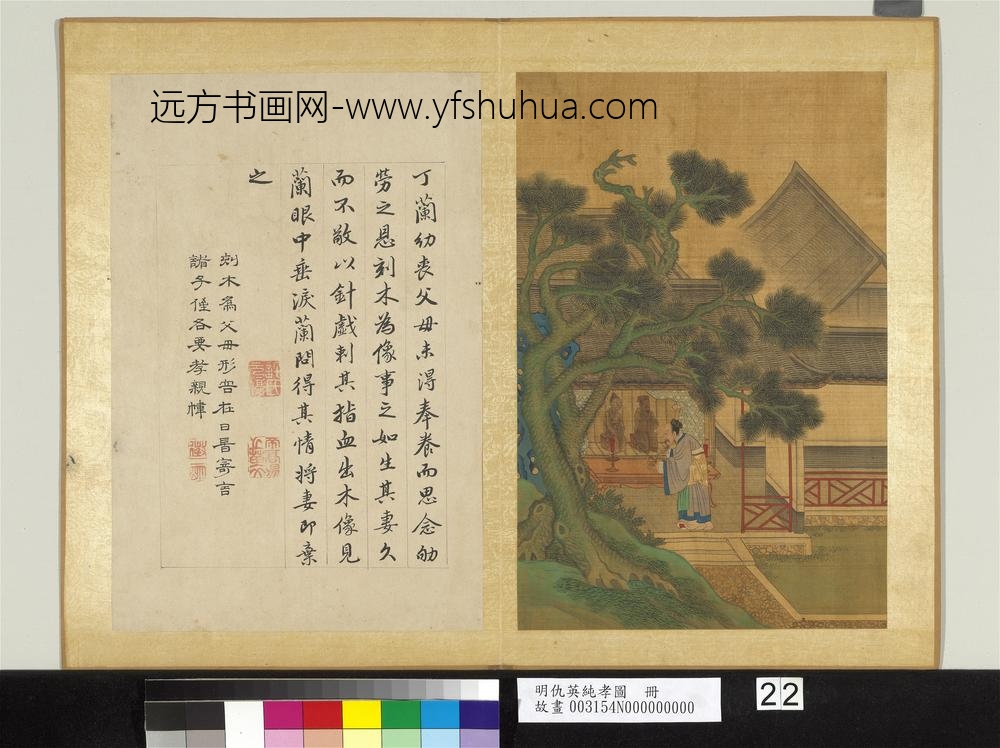 远方书画网-www.yfshuhua.com
丁蘭幼喪父母未得奉養而思念劬
勞之恩刻木為像事之如生其妻久
而不敬以針戲刺其指血出木像見
蘭眼中垂淚蘭問得其情將妻即棄
之
刻木爲父母形容在日時寄言
諸子侄各要孝親幃
明仇英純孝圖 冊
故畫003154N000000000
22